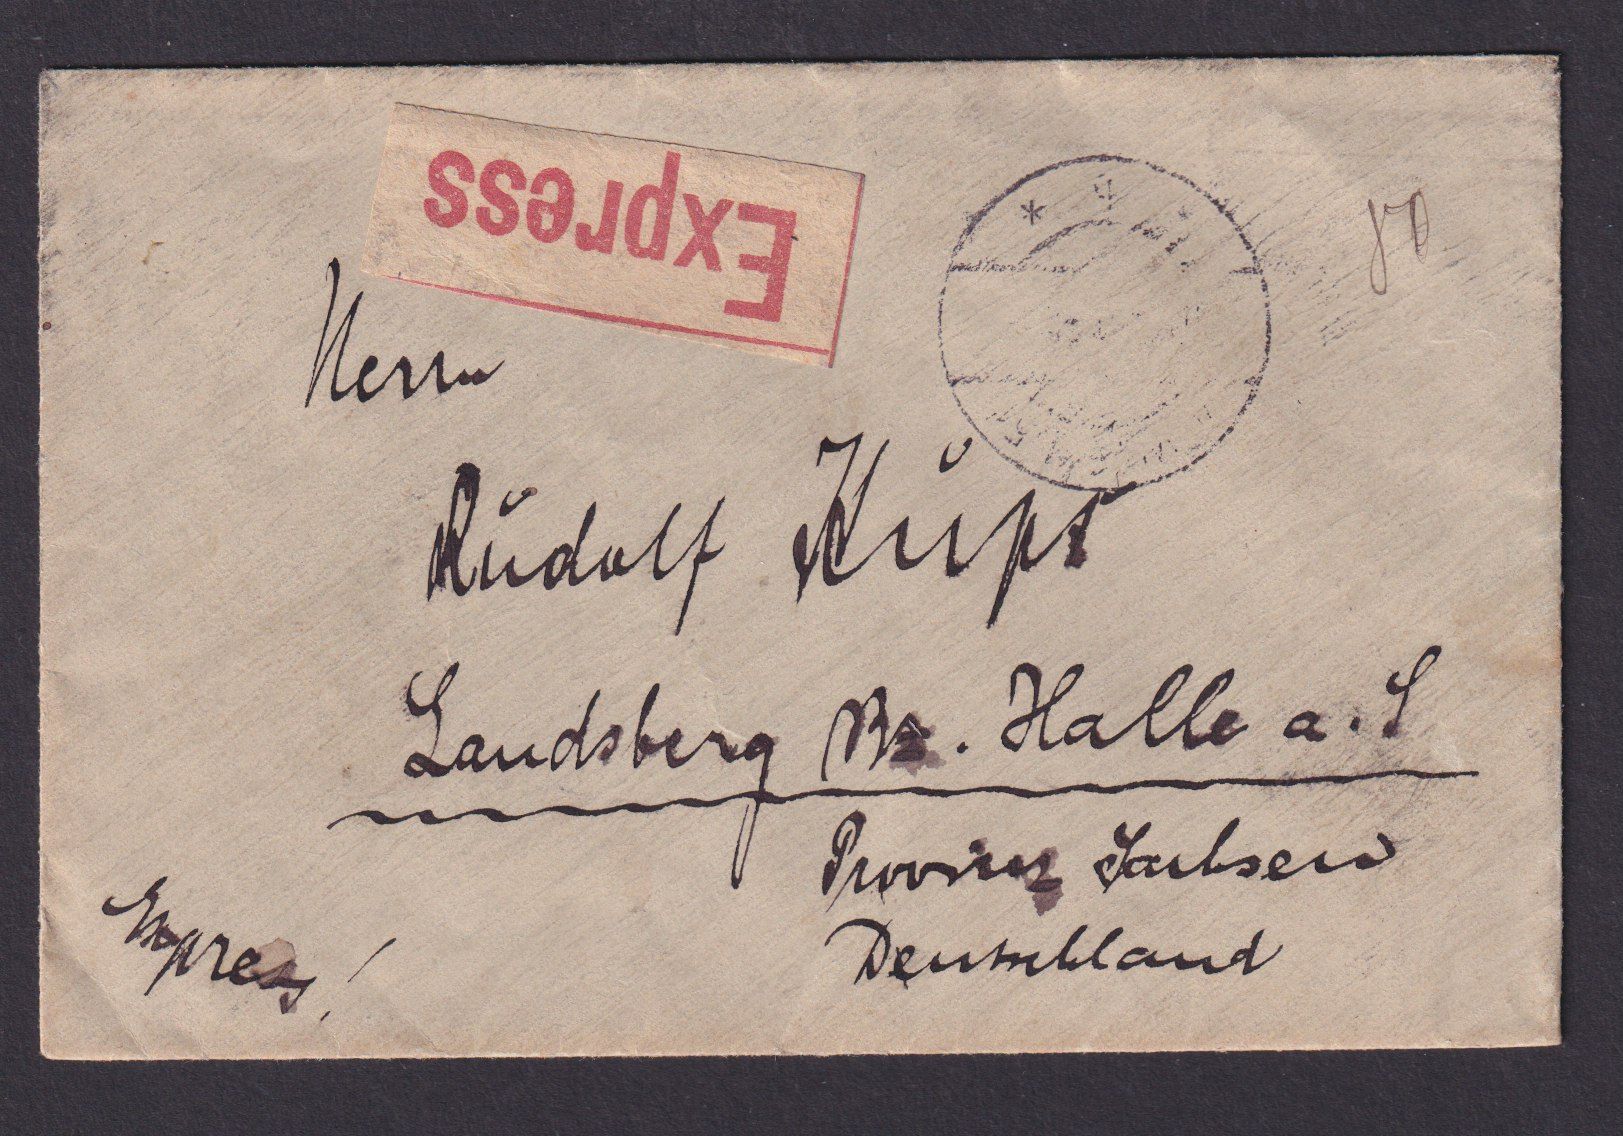 Express
Herrn
Rudolf
Landsberg Bz. Halle a. S
Provinz Sachsen
Deutschland
Express!
80